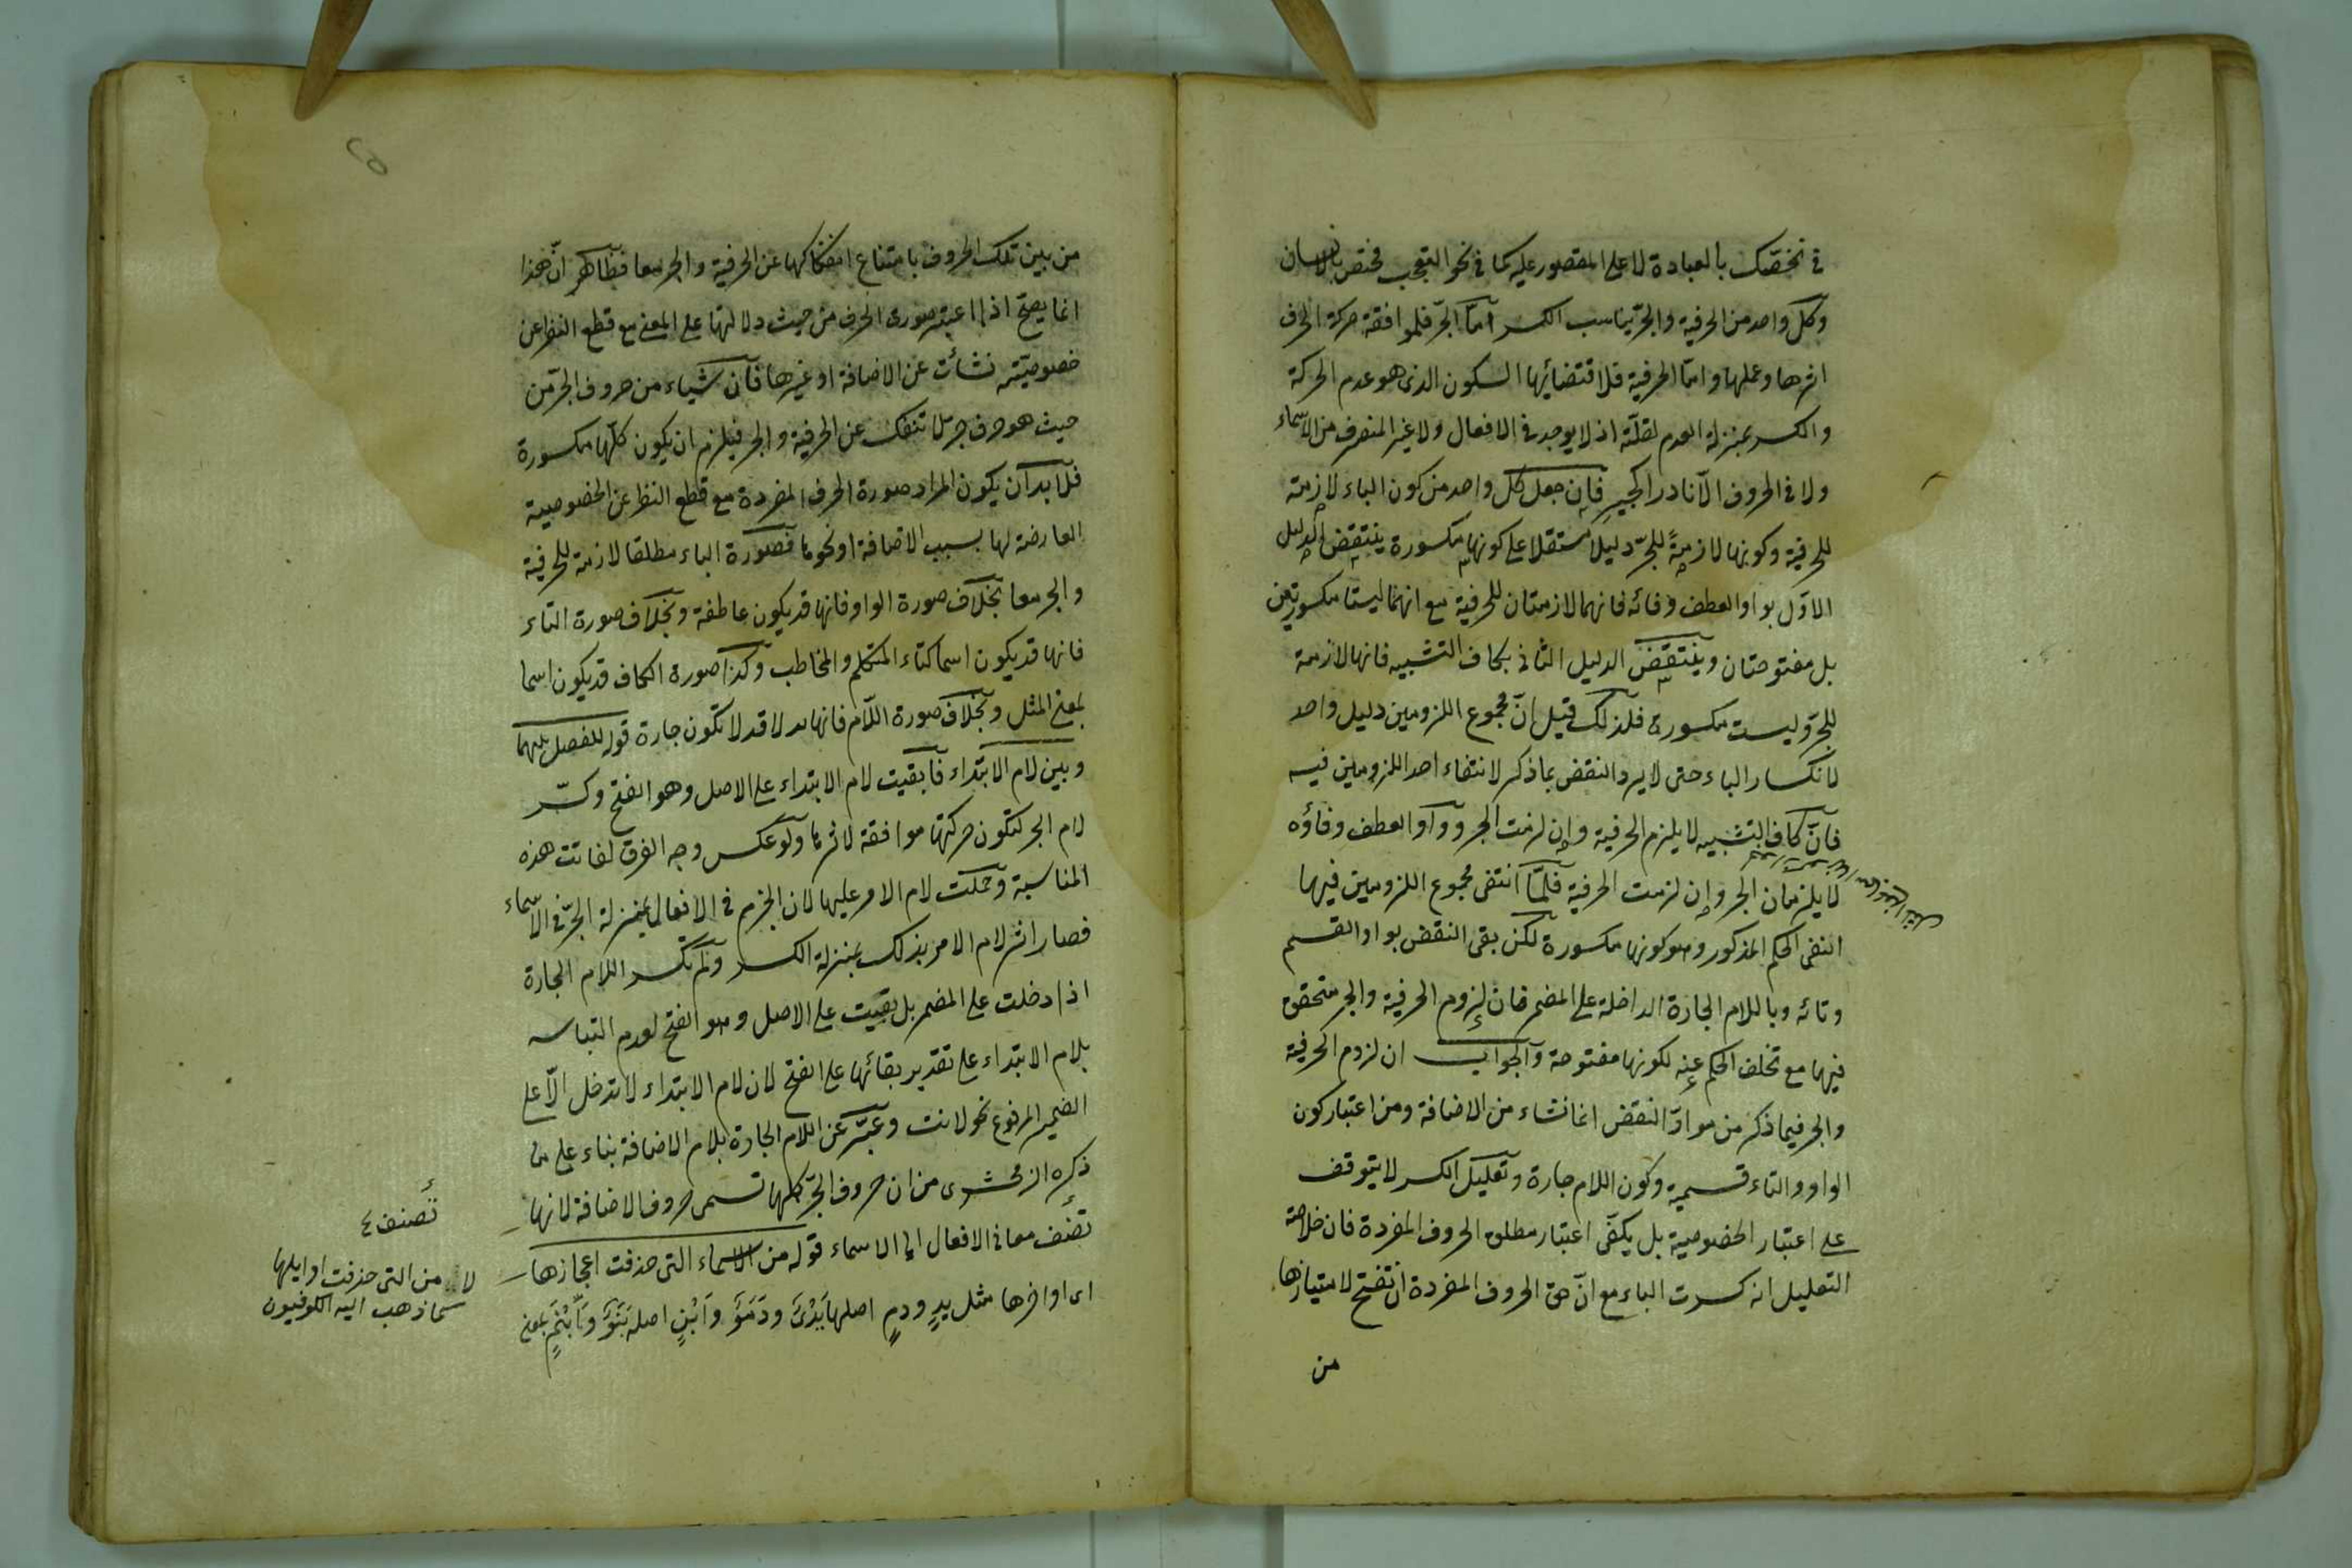 في نخصّك بالعبادة لا على المقصور عليه كما في نحو التعجب مختص بالانسان
وكل واحد من الحرفية والجر يناسب الكسر امّا الجرّ فلموافقة حركة الحرف
اثرها وعملها وامّا الحرفية فلاقتضائها السكون الذى هو عدم الحركة
والكسر بمنزلة العدم لقلّته اذ لا يوجد في الافعال ولا غير المنصرف من الاسماء
ولا في الحروف الّا نادرا كجيرِ فان جعل كل واحد من كون الباء لازمة
للحرفية وكونها لازمةً للجرّ دليلا مستقلا على كونها مكسورة ينتقض الدليل
الاوّل بواو العطف وفائه فانهما لازمتان للحرفية مع انهما ليستا مكسورتين
بل مفتوحتان وينتقض الدليل الثانى بكاف التشبيه فانها لازمة
للجرّ وليست مكسورة فلذلك قيل انّ مجموع اللزومين دليل واحد
لانكسار الباء حتى لا يرد النقض بما ذكر لانتفاء احد اللزومين فيه
فانّ كاف التشبيه لا يلزم الحرفية وان لزمت الجر وواو العطف وفاؤه
لا يلزمان الجر وان لزمت الحرفية فلمّا انتفى مجموع اللزومين فيها
انتفى الحكم المذكور وهو كونها مكسورة لكن بقى النقض بواو القسم
وتائه وباللام الجارة الداخلة على المضمر فان لزوم الحرفية والجر متحقق
فيها مع تخلف الحكم عنه لكونها مفتوحة والجواب ان لزوم الحرفية
والجر فيما ذكر من موادّ النقض انما نشاء من الاضافة ومن اعتبار كون
الواو والتاء قسمية وكون اللام جارة وتعليل الكسر لا يتوقف
على اعتبار الخصوصية بل يكفى اعتبار مطلق الحروف المفردة فان خلاصة
التعليل انه كسرت الباء مع انّ حق الحروف المفردة ان تفتح لامتيازها
من
من بين تلك الحروف بامتناع انفكاكها عن الحرفية والجر معا فظاهر انّ هذا
انما يصحّ اذا اعتبر صورة الحرف من حيث دلالتها على المعنى مع قطع النظر عن
خصوصيته نشأت عن الاضافة او غيرها فان شياء من حروف الجرّ من
حيث هو حرف جر لا تنفك عن الحرفية والجر فيلزم ان يكون كلّها مكسورة
فلا بد ان يكون المراد صورة الحرف المفردة مع قطع النظر عن الخصوصية
العارضة لها بسبب الاضافة او نحوها فصورة الباء مطلقا لازمة للحرفية
والجر معا بخلاف صورة الواو فانها قد يكون عاطفة وبخلاف صورة التاء
فانها قد يكون اسما كتاء المتكلم والمخاطب وكذا صورة الكاف قد يكون اسما
بمعنى المثل وبخلاف صورة اللام فانها قد لا تكون جارة قوله للفصل بينهما
وبين لام الابتداء فابقيت لام الابتداء على الاصل وهو الفتح وكسّر
لام الجر لتكون حركتها موافقة لاثرها ولو عكس وجه الفرق لفاتت هذه
المناسبة وحملت لام الامر عليها لان الجزم في الافعال بمنزلة الجرّ في الاسماء
فصار اثر لام الامر بذلك بمنزلة الكسر ولم تكسر اللام الجارة
اذا دخلت على المضمر بل بقيت على الاصل وهو الفتح لعدم التباسه
بلام الابتداء على تقدير بقائها على الفتح لان لام الابتداء لا تدخل الّا على
الضمير المرفوع نحو لانت وعبّر عن اللام الجارة بلام الاضافة بناء على ما
ذكره الزمخشرى من ان حروف الجرّ كلها تسمى حروف الاضافة لانها
تضف معانى الافعال الى الاسماء قوله من الاسماء التى حذفت اعجازها
اى اواخرها مثل يدٍ ودمٍ اصلها يَدْىٌ ودَمَوٌ وابْنٍ اصله بَنَوٌ وابْنَمٍ بمعنى
تصنف ٤
لا من التى حذفت اوايلها
كما ذهب اليه الكوفيون